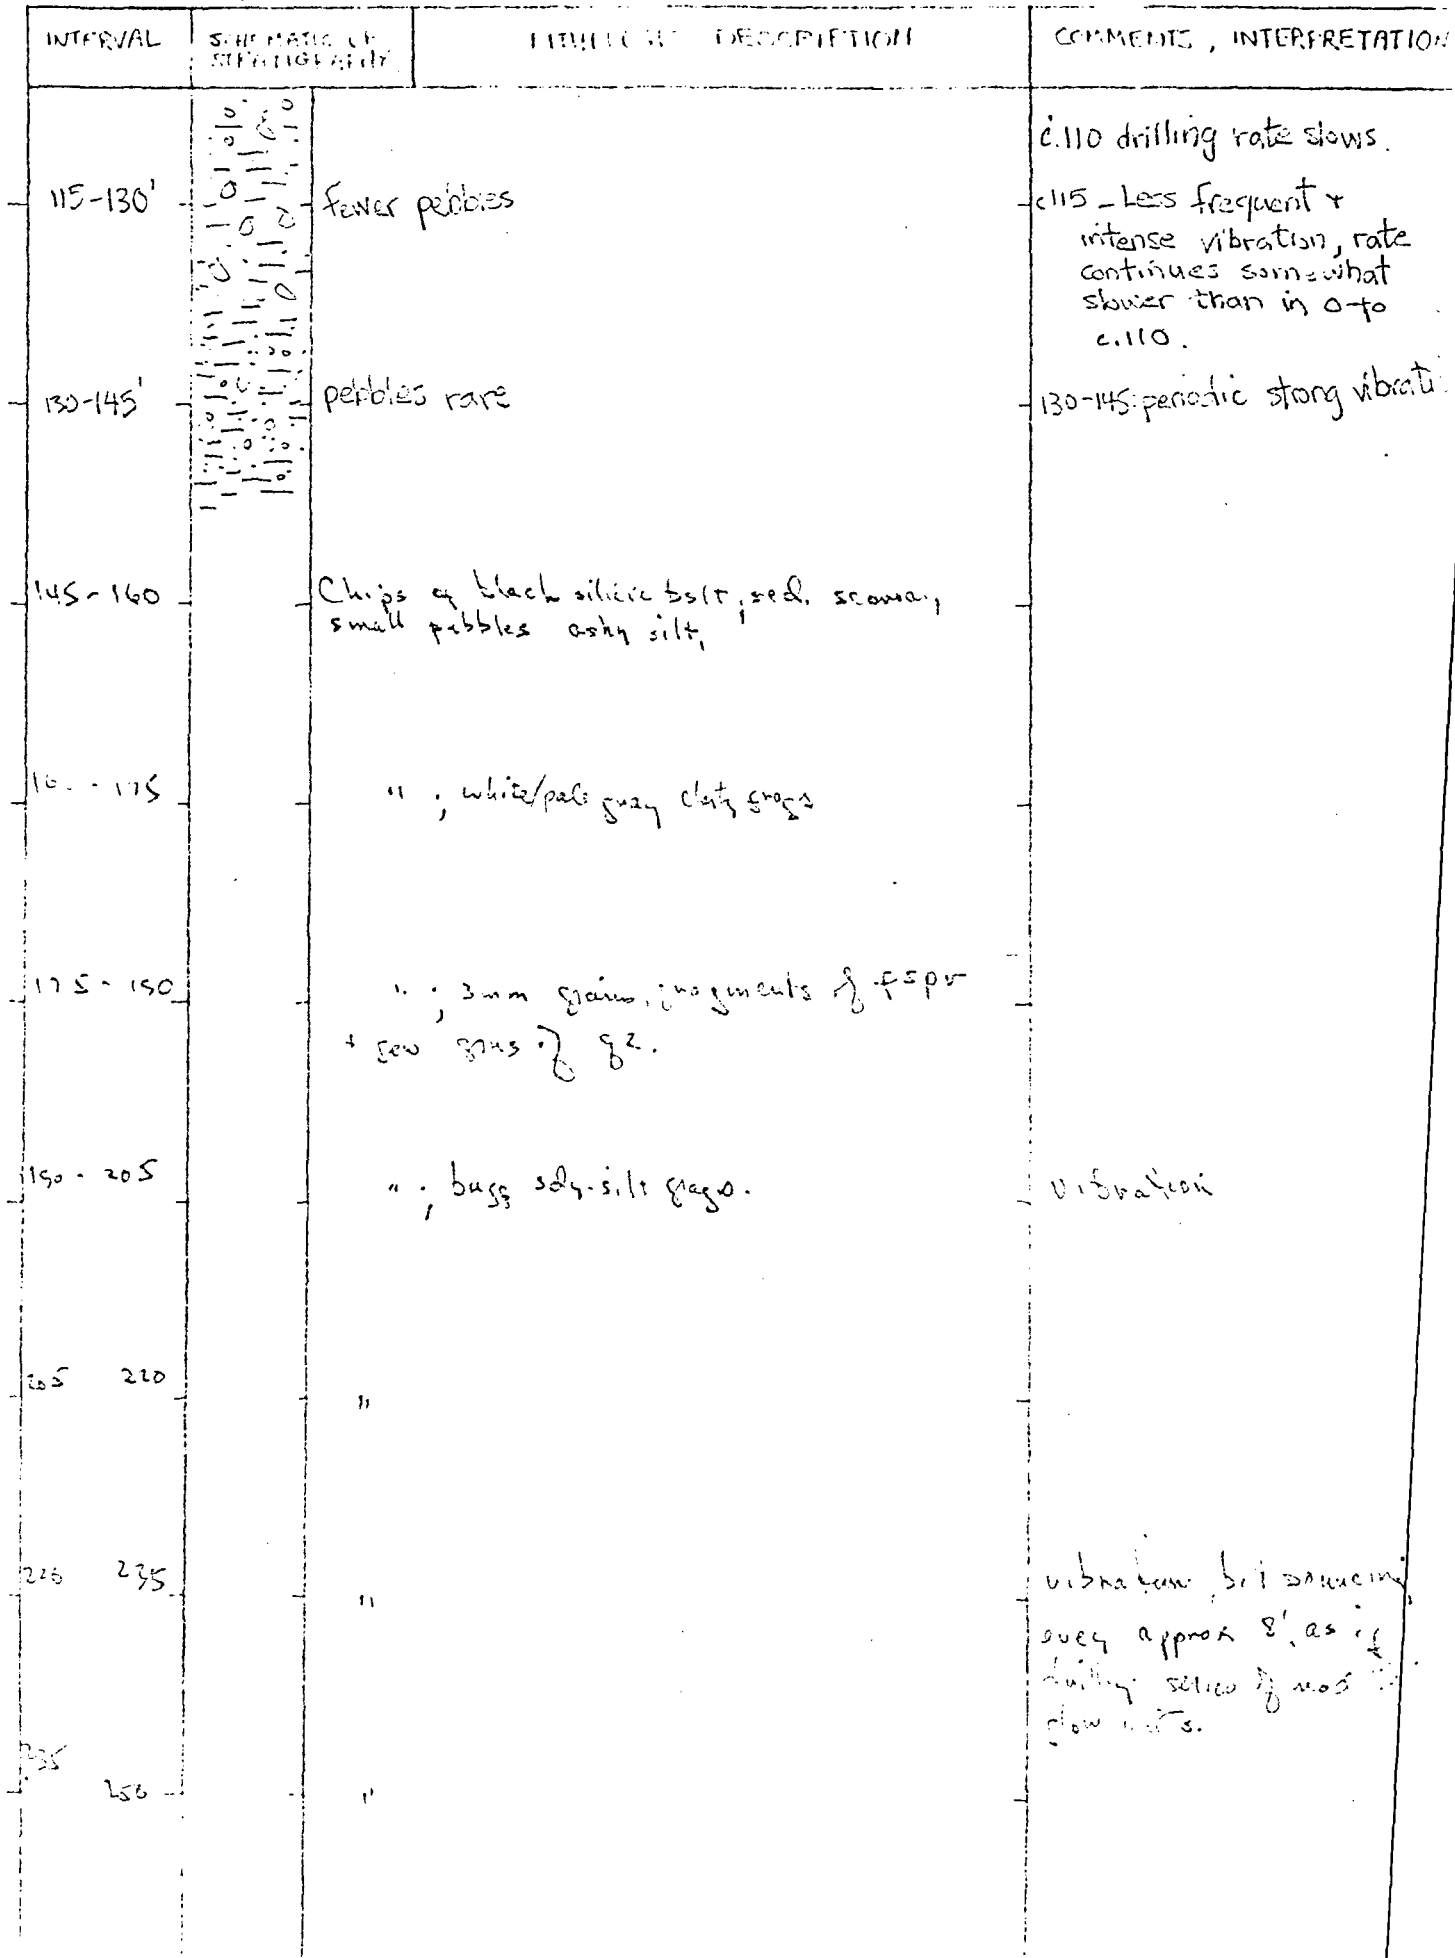 INTERVAL
SCHEMATIC OF
STRATIGRAPHY
DESCRIPTION
COMMENTS, INTERPRETATION
c.110 drilling rate slows.
115-130'
fewer pebbles
c115 - Less frequent +
intense vibration, rate
continues somewhat
slower than in 0-to
c.110.
130-145'
pebbles rare
130-145: periodic strong
145-160
Chips of black silicic bslt, red. scoria,
small pebbles ashy silt,
175
" ; white/pale gray frags
175-190
" ; 3mm grains, fragments of fspr
+ few grns of qz.
190-205
" ; buff sdy-silt frags.
vibration
205 220
"
220 235
"
vibration, bit bouncing
every approx 8', as if
series of
flow
235
250
"